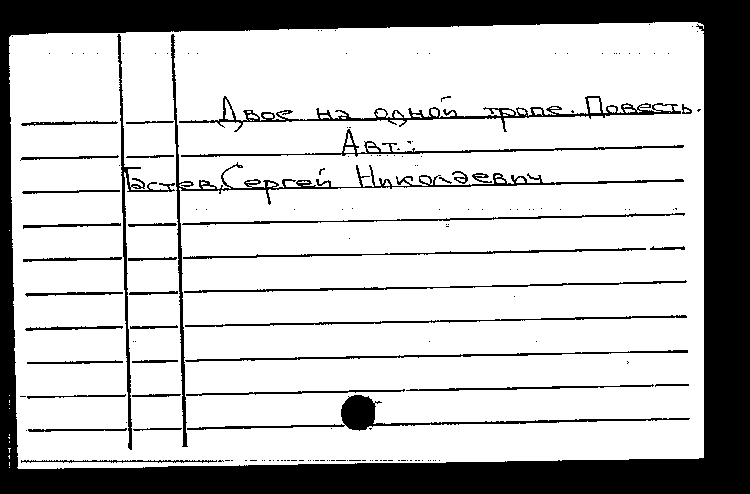 Двое на одной тропе. Повесть.
Авт.:
Гастев, Сергей Николаевич